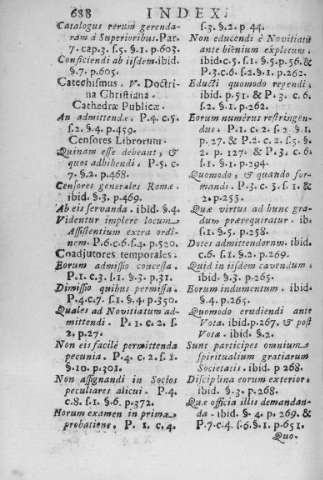 688 INDEX.
Catalogus rerum gerenda-
ram à Superioribus. Par.
7. cap.3. s.5. §.1. p.603.
Conficiendi ab iisdem. ibid.
§.7. p.605.
Catechismus. V. Doctri-
na Christiana.
Cathedræ Publicæ.
An admittendæ. P.4. c.5.
s.2. §.4. p.459.
Censores Librorum.
Quinam esse debeant, &
quos adhibendi. P.5. c.
7. §.2. p.468.
Censores generales Romæ.
ibid. §.3. p.469.
Ab eis servanda. ibid. §.4.
Videntur implere locum
Assistentium extra ordi-
nem. P.6. c.6. §.4. p.520.
Coadjutores temporales.
Eorum admissio concessa.
P.1. c.3. s.1. §.3. p.31.
Dimissio quibus permissa.
P.4.c.7. s.1. §.4. p.350.
Quales ad Novitiatum ad-
mittendi. P. 1. c. 2. s.
2. p.27.
Non eis facilè permittenda
pecunia. P.4. c. 2. s.1.
§.10. p.301.
Non assignandi in Socios
peculiares alicui. P.4.
c.8. s.1. §.6. p.372.
Horum examen in prima
probatione. P. 1. c. 4.
s.3. §.2. p.44.
Non educendi è Novitiatu
ante biënium expletum.
ibid. c.5. s.1. §.5. p.56. &
P.3. c.6. s.2. §.1. p.262.
Educti quomodo regendi.
ibid. p.51. & P.3. c.6.
s.2. §.1. p.262.
Eorum numerus restringen-
dus. P.1. c.2. s.2. §.1.
p. 27. & P.2. c.2. s.5. §.
2. p. 127. & P.3. c.6.
s.1. §.1. p.294.
Quomodo, & quando for-
mandi. P.3. c.3. s.1. &
2. p.253.
Quæ virtus ad hunc gra-
dum prærequiratur. ib.
s.1. §.5. p.258.
Dotes admittendorum. ibid.
c.6. §.4. p.269.
Quid in iisdem cavendum.
ibid. §.3. p.265.
Eorum indumentum. ibid.
§.4. p.265.
Quomodo erudiendi ante
Vota. ibid. p.267. & post
Vota. ibid. §.2.
Sunt participes omnium
spiritualium gratiarum
Societatis. ibid. p 268.
Disciplina eorum exterior.
ibid. §.3. p.268.
Quæ officia illis demandan-
da. ibid. §.4. p. 269. &
P.7.c.4. s.6. §.1. p.651.
Quo.